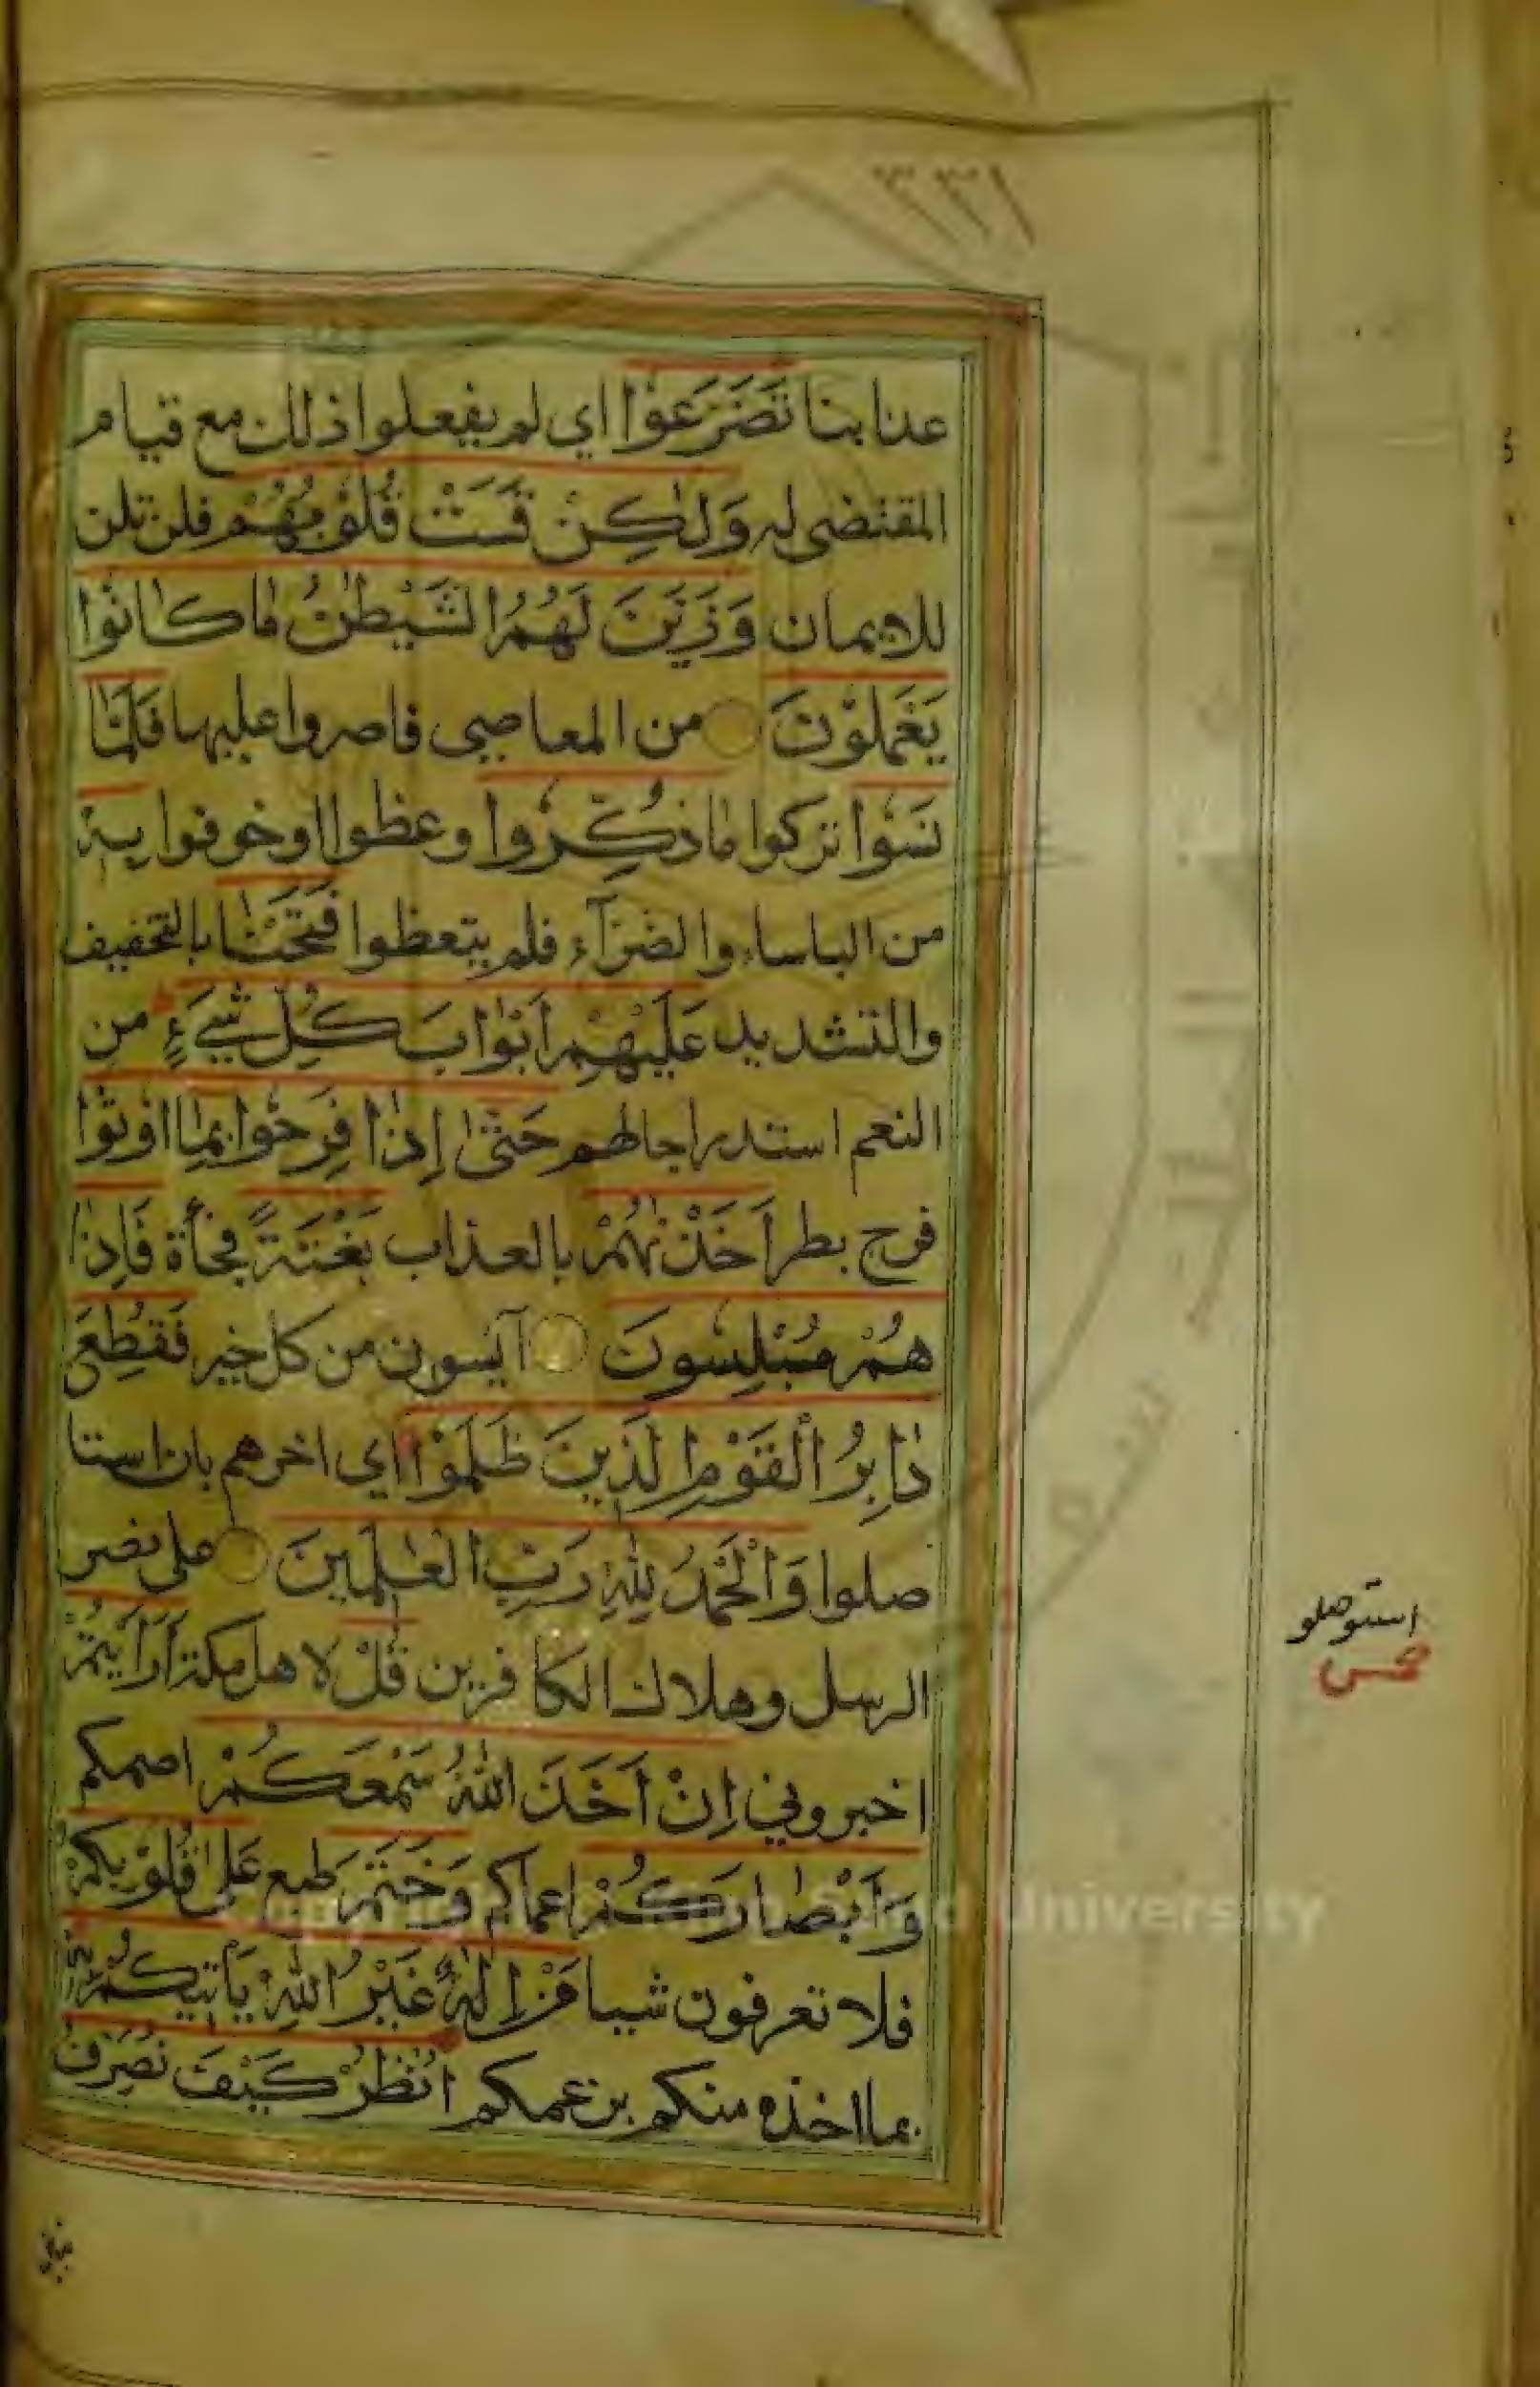 ١٣٣
عذابنا تَضَرَّعُوْا اي لم يفعلوا ذلك مع قيام
المقتضى له وَلٰكِنْ قَسَتْ قُلُوْبُهُمْ فلن تلن
للايمان وَزَيَّنَ لَهُمُ الشَّيْطٰنُ مٰا كٰانُوا
يَعْمَلُوْنَ من المعاصي فاصروا عليها فَلَمّٰا
نَسُوْا تركوا مٰا ذُكِّرُوا وعظوا اوخوفوا بِهٖ
من الباساء والضرآء فلم يتعظوا فَتَحْنٰا بالتخفيف
والتشديد عَلَيْهِمْ اَبْوٰابَ كُلِّ شَيْءٍ من
النعم استدراجا لهم حَتّٰى اِذٰا فَرِحُوْا بِمٰا اُوْتُوْا
فرح بطر اَخَذْنٰهُمْ بالعذاب بَغْتَةً فجأة فَاِذٰا
هُمْ مُبْلِسُوْنَ آيسون من كل خير فَقُطِعَ
دٰابِرُ الْقَوْمِ الَّذِينَ ظَلَمُوْا اي اخرهم بان استا
صلوا وَالْحَمْدُ لِلّٰهِ رَبِّ الْعٰلَمِينَ على نصر
الرسل وهلاك الكافرين قُلْ لاهل مكة اَرَاَيْتُمْ
اخبروني اِنْ اَخَذَ اللّٰهُ سَمْعَكُمْ اصمكم
وَاَبْصٰارَكُمْ اعماكم وَخَتَمَ طبع عَلٰى قُلُوْبِكُمْ
فلا تعرفون شيا مَنْ اِلٰهٌ غَيْرُ اللّٰهِ يَأْتِيكُمْ بِهٖ
بما اخذه منكم بزعمكم اُنْظُرْ كَيْفَ نُصَرِّفُ
استوصلو
Copyright © King Saud University